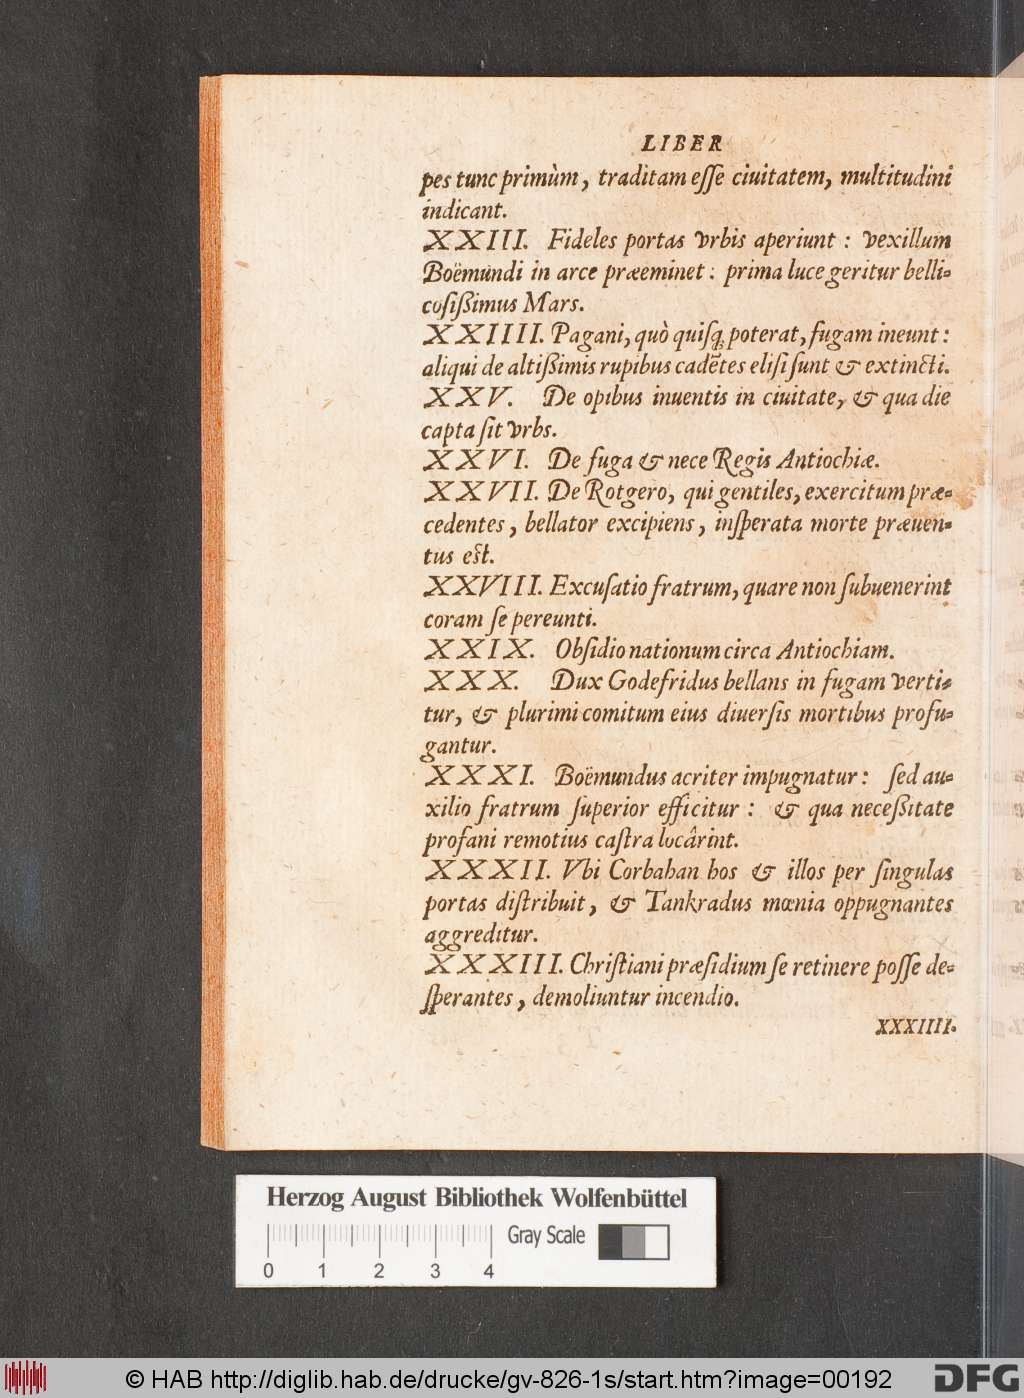 LIBER
pes tunc primùm, traditam eſſe ciuitatem, multitudini
indicant.
XXIII. Fideles portas vrbis aperiunt : vexillum
Boëmundi in arce præeminet : prima luce geritur belli-
coſißimus Mars.
XXIIII. Pagani, quò quiſq; poterat, fugam ineunt :
aliqui de altißimis rupibus cadẽtes eliſi ſunt & extincti.
XXV. De opibus inuentis in ciuitate, & qua die
capta ſit vrbs.
XXVI. De fuga & nece Regis Antiochiæ.
XXVII. De Rotgero, qui gentiles, exercitum præ-
cedentes, bellator excipiens, inſperata morte præuen-
tus est.
XXVIII. Excuſatio fratrum, quare non ſubuenerint
coram ſe pereunti.
XXIX. Obſidio nationum circa Antiochiam.
XXX. Dux Godefridus bellans in fugam verti-
tur, & plurimi comitum eius diuerſis mortibus profu-
gantur.
XXXI. Boëmundus acriter impugnatur : ſed au-
xilio fratrum ſuperior efficitur : & qua neceßitate
profani remotius caſtra locârint.
XXXII. Vbi Corbahan hos & illos per ſingulas
portas diſtribuit, & Tankradus mœnia oppugnantes
aggreditur.
XXXIII. Chriſtiani præſidium ſe retinere poſſe de-
ſperantes, demoliuntur incendio.
XXXIIII.
Herzog August Bibliothek Wolfenbüttel
Gray Scale
0 1 2 3 4
© HAB http://diglib.hab.de/drucke/gv-826-1s/start.htm?image=00192
DFG